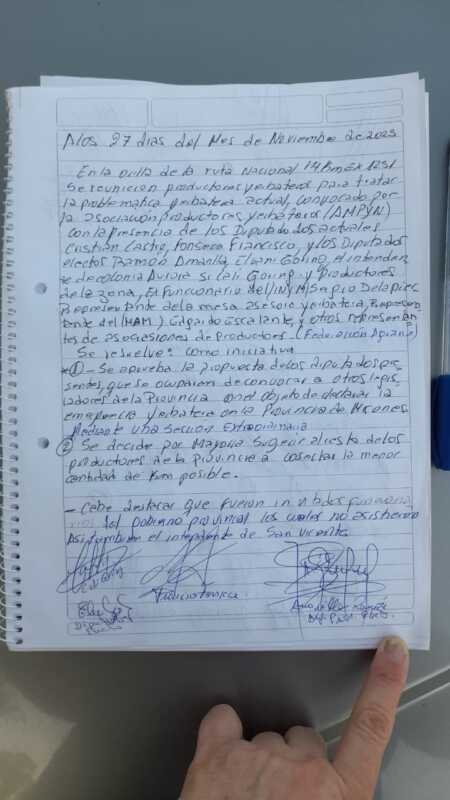 A los 27 dias del Mes de Noviembre de 2025
En la orilla de la ruta Nacional 14 Km Ex 1231
Se reunieron productores yerbateros para tratar
la problematica yerbatera actual, convocado por
la asociación productores yerbateros (AMPYN)
con la presencia de los Diputados actuales
Cristian Castro, Fonseca Francisco, y los Diputados
electos Ramón Amarilla, Elvani Goring, el intenden
te de colonia Aurora Si Lali Goring y productores
de la zona, Ex funcionario del INYM Sapio
Representante de la mesa asesora yerbatera, Represen
tante del (MAM) Edgardo Escalante, y otros represen
tes de asociasiones de productores (Federacion Agraria)
Se resuelve: como iniciativa
① - Se aprueba la propuesta de los diputados pre
sentes, que se ocuparan de convocar a otros legis
ladores de la Provincia con el objeto de declarar la
emergencia yerbatera en la Provincia de Misiones
Mediante una Sección Extraordinaria
② Se decide por Mayoria Sugerir al resto de los
productores de la Provincia a cosechar la menor
cantidad de Kgrm posible.
- Cabe destacar que fueron invitados funciona
rios del gobierno provincial los cuales no asistieron
Asi tambien el intendente de San Vicente
Amarilla Ramón